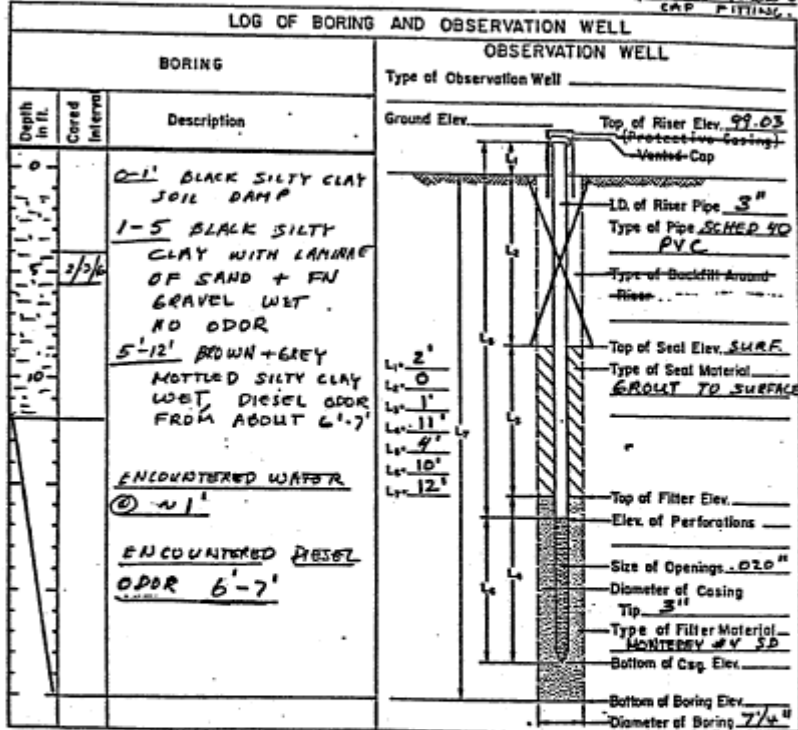 CAP FITTING.
LOG OF BORING AND OBSERVATION WELL
BORING
Depth in ft.
Cored Interval
Description
0
5
10
2/2/6
0-1' BLACK SILTY CLAY
SOIL DAMP
1-5 BLACK SILTY
CLAY WITH LAMINAE
OF SAND + FN
GRAVEL WET
NO ODOR
5'-12' BROWN + GREY
MOTTLED SILTY CLAY
WET, DIESEL ODOR
FROM ABOUT 6'-7'
ENCOUNTERED WATER
@ ~1'
ENCOUNTERED DIESEL
ODOR 6'-7'
OBSERVATION WELL
Type of Observation Well
Ground Elev.
Top of Riser Elev. 99.03
(Protective Casing)
Vented Cap
I.D. of Riser Pipe 3"
Type of Pipe SCHED 40
PVC
Type of Backfill Around
Riser
Top of Seal Elev. SURF.
Type of Seal Material
GROUT TO SURFACE
L₁= 2'
L₂= 0
L₃= 1'
L₄= 11'
L₅= 4'
L₆= 10'
L₇= 12'
L₁
L₂
L₅
L₃
L₇
L₄
L₆
Top of Filter Elev.
Elev. of Perforations
Size of Openings .020"
Diameter of Casing
Tip 3"
Type of Filter Material
MONTEREY #4 SD
Bottom of Csg. Elev.
Bottom of Boring Elev.
Diameter of Boring 7 1/4"